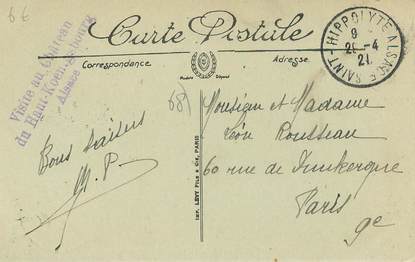 6€
Carte Postale
Correspondance
Adresse
Visite au Château
du Haut-Koenigsbourg
Alsace
SAINT-HIPPOLYTE ALSACE
9
20-4
21
Bons baisers
M.P.
68
Monsieur et Madame
Léon Rousseau
60 rue de Dunkerque
Paris
9e
IMP. LÉVY FILS & Cie, PARIS